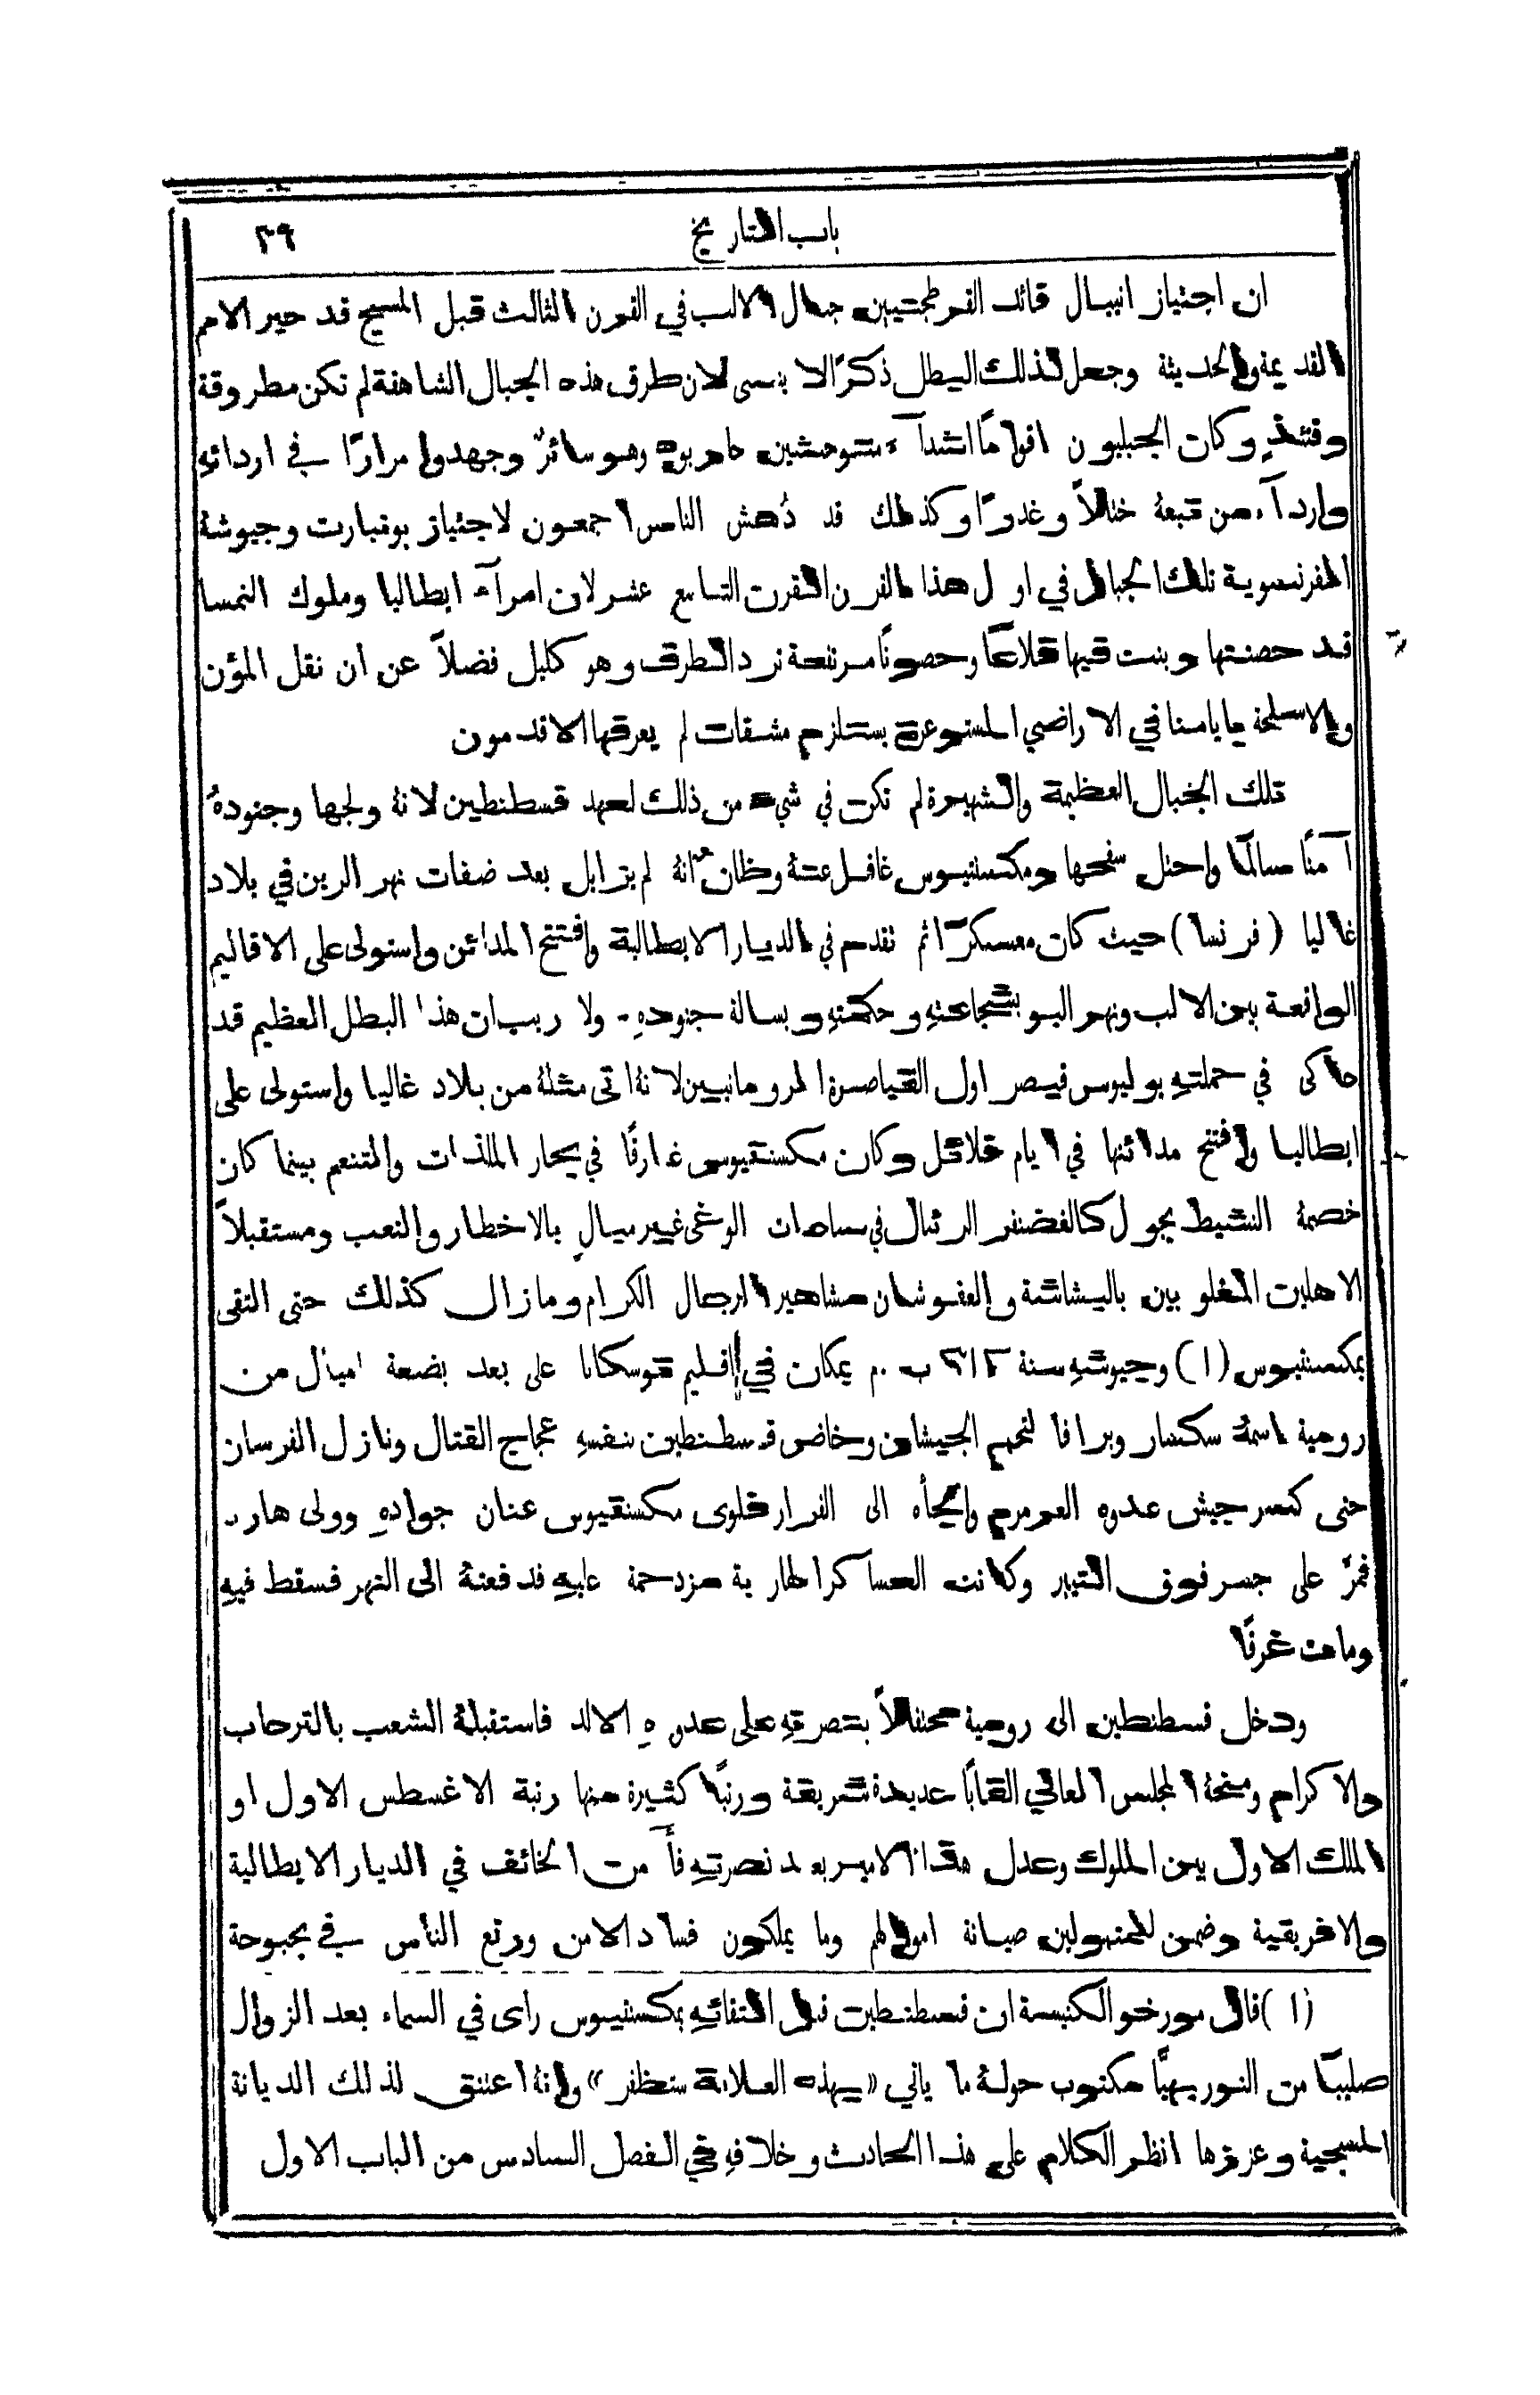 باب التاريخ ٢٩
ان اجتياز انيبال قائد القرطجنيين جبال الالب في القرن الثالث قبل المسيح قد حير الامم
القديمة والحديثة وجعل لذلك البطل ذكرًا لا ينسى لان طرق هذه الجبال الشاهقة لم تكن مطروقة
وقتئذٍ وكان الجبليون اقوامًا اشدآء متوحشين حاربوه وهو سائرٌ وجهدوا مرارًا في اردائهِ
وارداء من تبعهُ ختلاً وغدرًا وكذلك قد دُهش الناس اجمعون لاجتياز بونبارت وجيوشهُ
الفرنسوية تلك الجبال في اول هذا القرن القرن التاسع عشر لان امرآء ايطاليا وملوك النمسا
قد حصنتها وبنت فيها قلاعًا وحصونًا مرتفعة ترد الطرف وهو كليل فضلاً عن ان نقل المؤن
والاسلحة يا يامنا في الاراضي المستوعرة يستلزم مشقات لم يعرفها الاقدمون
تلك الجبال العظيمة والشهيرة لم تكن في شيء من ذلك لعهد قسطنطين لانهُ ولجها وجنودهُ
آمنًا سالمًا واحتل سفحها ومكسنتيوس غافل عنهُ وظانٌّ انهُ لم يزايل بعد ضفات نهر الرين في بلاد
غاليا (فرنسا) حيث كان معسكرًا ثم تقدم في الديار الايطالية وافتتح المدائن واستولى على الاقاليم
الواقعة بين الالب ونهر البو بشجاعتهِ وحكمتهِ وبسالة جنودهِ. ولا ريب ان هذا البطل العظيم قد
حاكى في حملتهِ يوليوس قيصر اول القياصرة الرومانيين لانهُ اتى مثلهُ من بلاد غاليا واستولى على
ايطاليا وافتتح مدائنها في ايام قلائل وكان مكسنتيوس غارقًا في بحار الملذات والتنعم بينما كان
خصمهُ النشيط يجول كالغضنفر الرئبال في ساحات الوغى غير ميالٍ بالاخطار والتعب ومستقبلاً
الاهلين المغلوبين بالبشاشة والعفو شان مشاهير الرجال الكرام وما زال كذلك حتى التقى
بمكسنتيوس (١) وجيوشهِ سنة ٣١٢ ب.م بمكان في اقليم توسكانا على بعد بضعة اميال من
رومية اسمهُ سكسار وبرا فا لتحم الجيشان وخاض قسطنطين بنفسهِ عجاج القتال ونازل الفرسان
حتى كسر جيش عدوه العرمرم والجأه الى الفرار فلوى مكسنتيوس عنان جوادهِ وولى هارب
فمرَّ على جسر فوق التيبر وكانت العساكر الهاربة مزدحمة عليهِ فدفعتهُ الى النهر فسقط فيهِ
ومات غرقًا
ودخل قسطنطين الى رومية محتفلاً بنصرتهِ على عدوهِ الالد فاستقبلهُ الشعب بالترحاب
والاكرام ومنحهُ المجلس العالي القابًا عديدة شريفة ورتبًا كثيرة منها رتبة الاغسطس الاول او
الملك الاول بين الملوك وعدل هذا الامير بعد نصرتهِ فأَمن الخائف في الديار الايطالية
والافريقية وضمن للمتمولين صيانة اموالهم وما يملكون فساد الامن ورتع الناس في بحبوحة
(١) قال مورخو الكنيسة ان قسطنطين قبل التقائهِ بمكسنتيوس راى في السماء بعد الزوال
صليبًا من النور بهيًّا مكتوب حولهُ ما ياتي «بهذه العلامة ستظفر» وانهُ اعتنق لذلك الديانة
المسيحية وعززها انظر الكلام على هذا الحادث وخلافهِ في الفصل السادس من الباب الاول